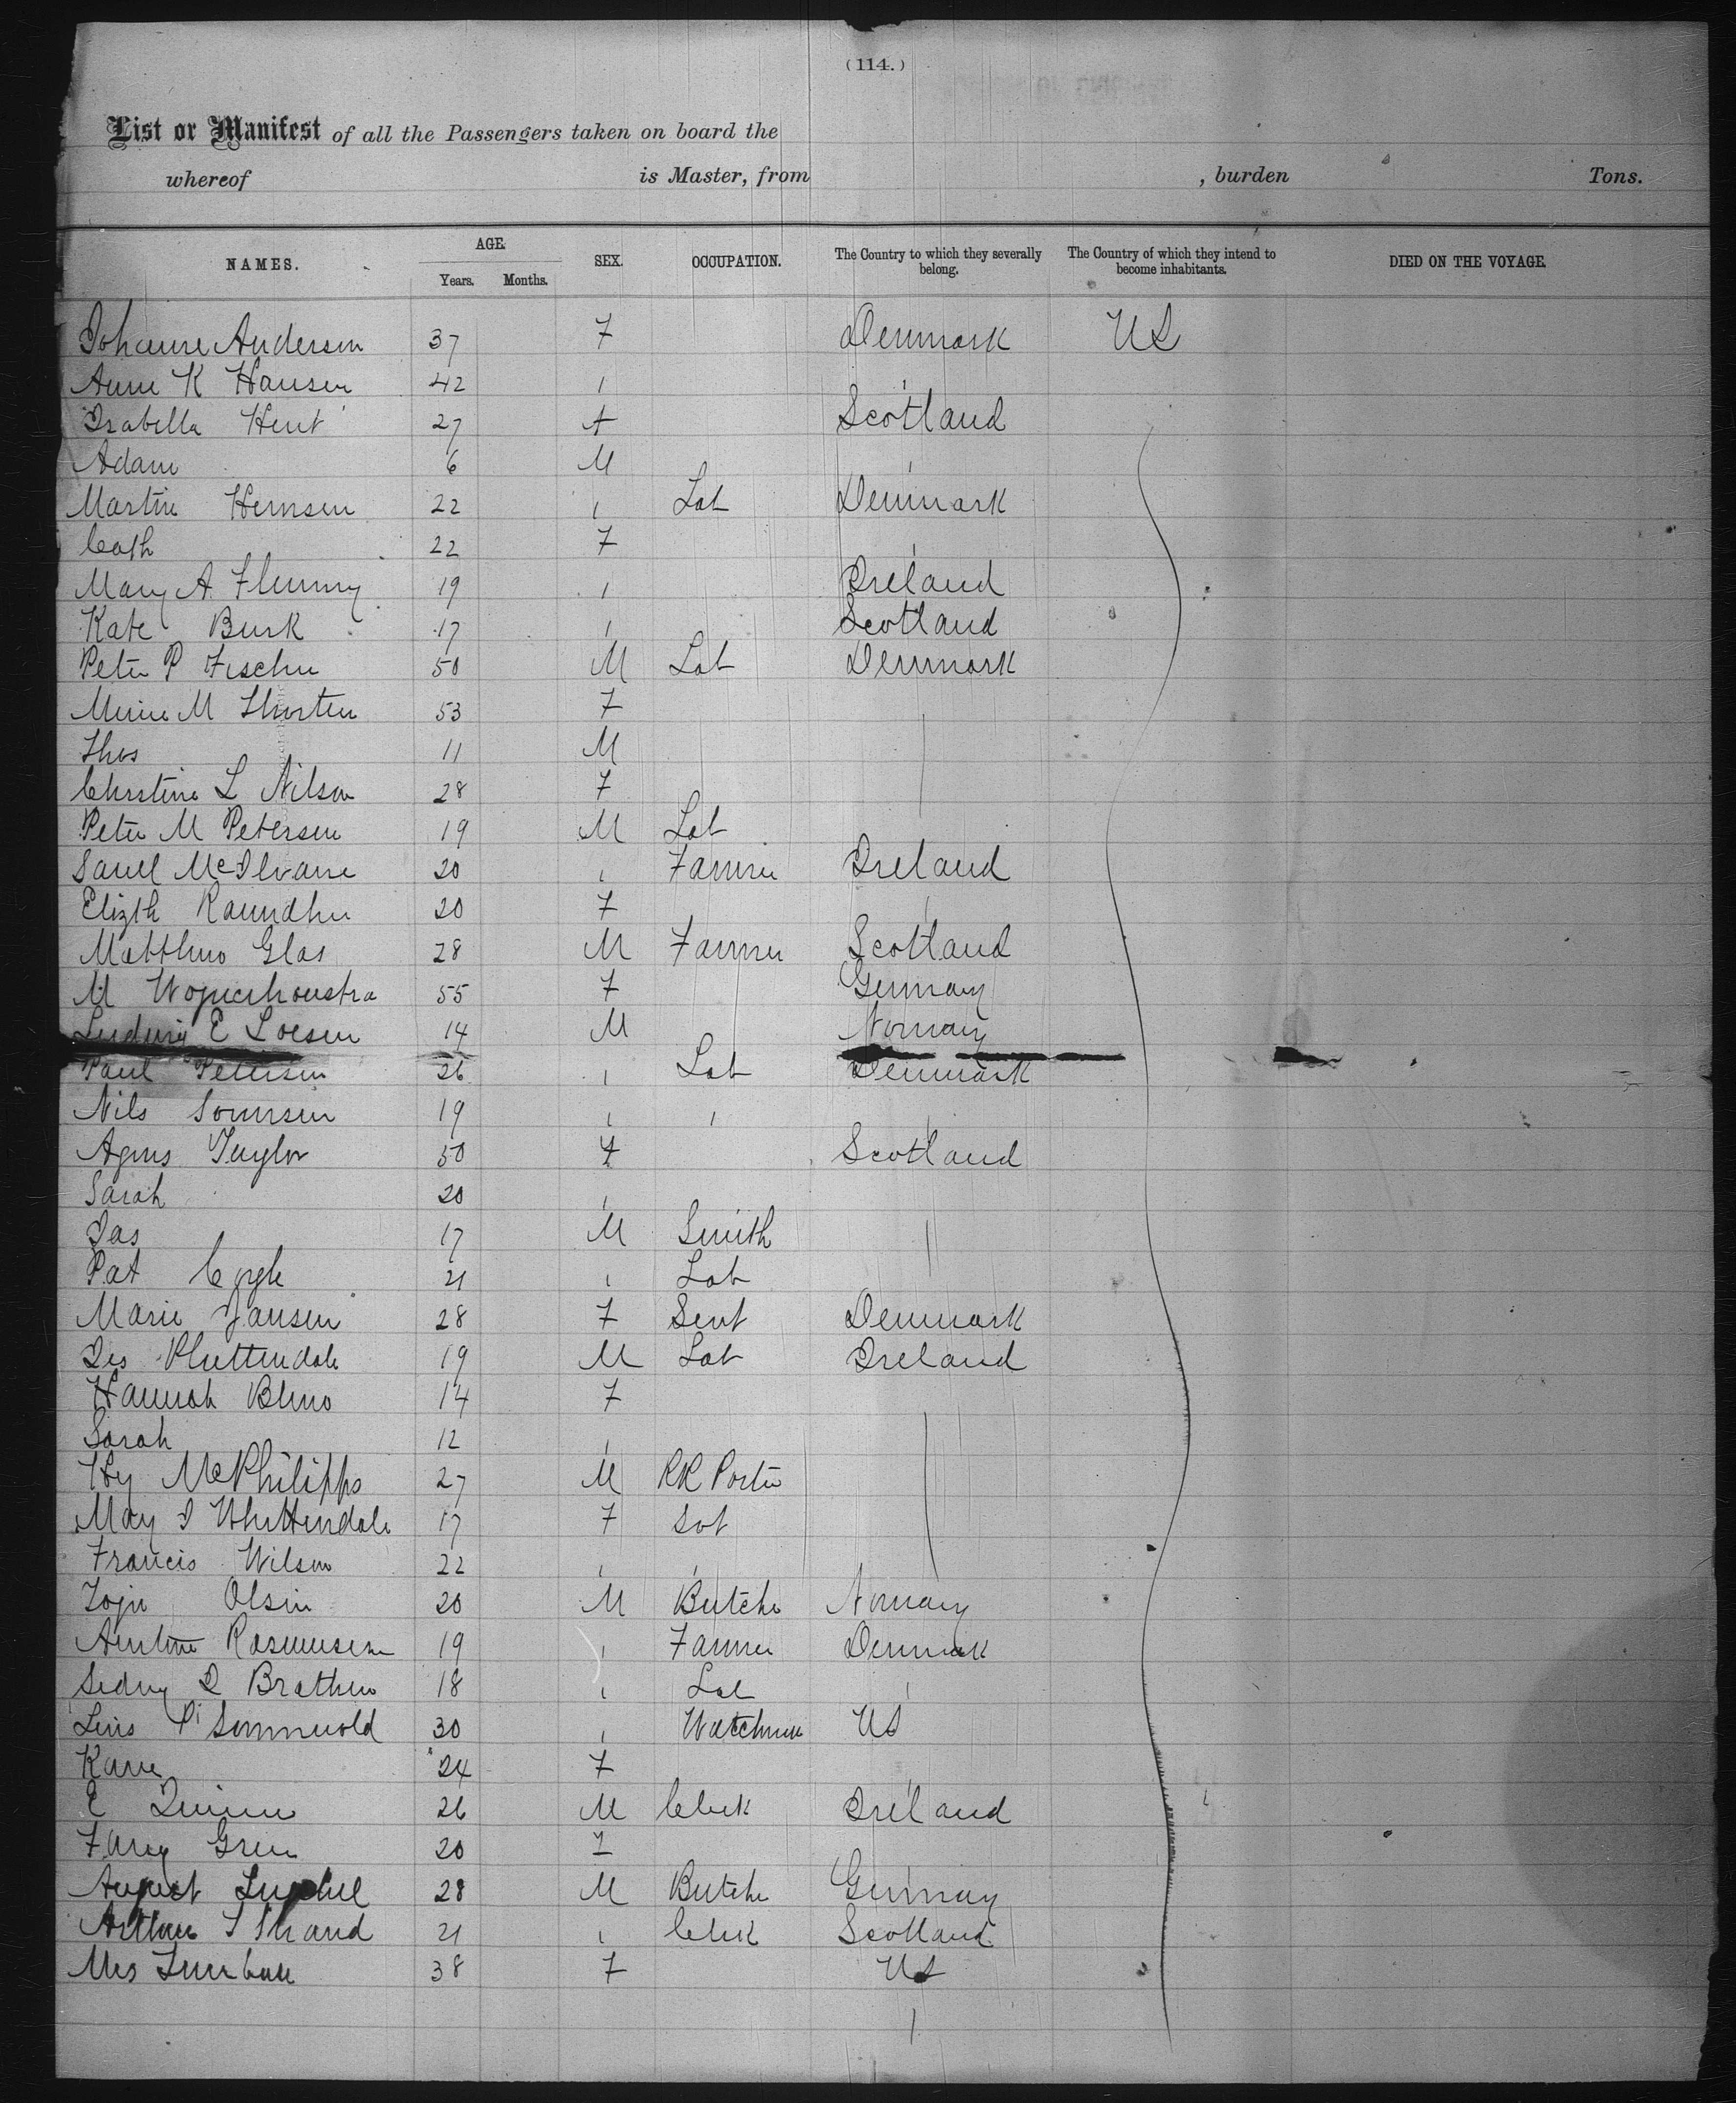 (114.)
List or Manifest of all the Passengers taken on board the
whereof is Master, from , burden Tons.
NAMES. AGE. Years. Months. SEX. OCCUPATION. The Country to which they severally belong. The Country of which they intend to become inhabitants. DIED ON THE VOYAGE.
Johanne Andersen 37 F Denmark US
Anne K Hansen 42 "
Isabella Hunt 27 + Scotland
Adam 6 M "
Martin Hernsen 22 " Lab Denmark
Cath 22 F "
Mary A. Fleming 19 " Ireland
Kate Burk 17 " Scotland
Peter P Fischer 50 M Lab Denmark
M Thorsten 53 F
Thos 11 M
Christine L Nilson 28 F
Peter M Petersen 19 M Lab
Saml McIlvane 20 " Farmer Ireland
Elizth 20 F "
Matthew Glas 28 M Farmer Scotland
M 55 F Germany
Ludwig E Loesen 14 M Norway
Paul Petersen 26 " Lab Denmark
Nils Sorensen 19 " " "
Agnes Taylor 50 F Scotland
Sarah 20 "
Jas 17 M Smith
Pat Coyle 21 " Lab
Marie Jansen 28 F Servt Denmark
19 M Lab Ireland
Hannah 14 F
Sarah 12 "
Hy McPhilipps 27 M RR Porter
May J Whittendale 17 F Svt
Francis Wilson 22 " "
Olsen 20 M Butcher Norway
Rasmussen 19 " Farmer Denmark
Sidny 18 " Lab "
30 " Watchman US
24 F "
E 26 M Clerk Ireland
Green 20 F
August 28 M Butcher Germany
Arthur 21 " Clerk Scotland
Mrs Turnbull 38 F US